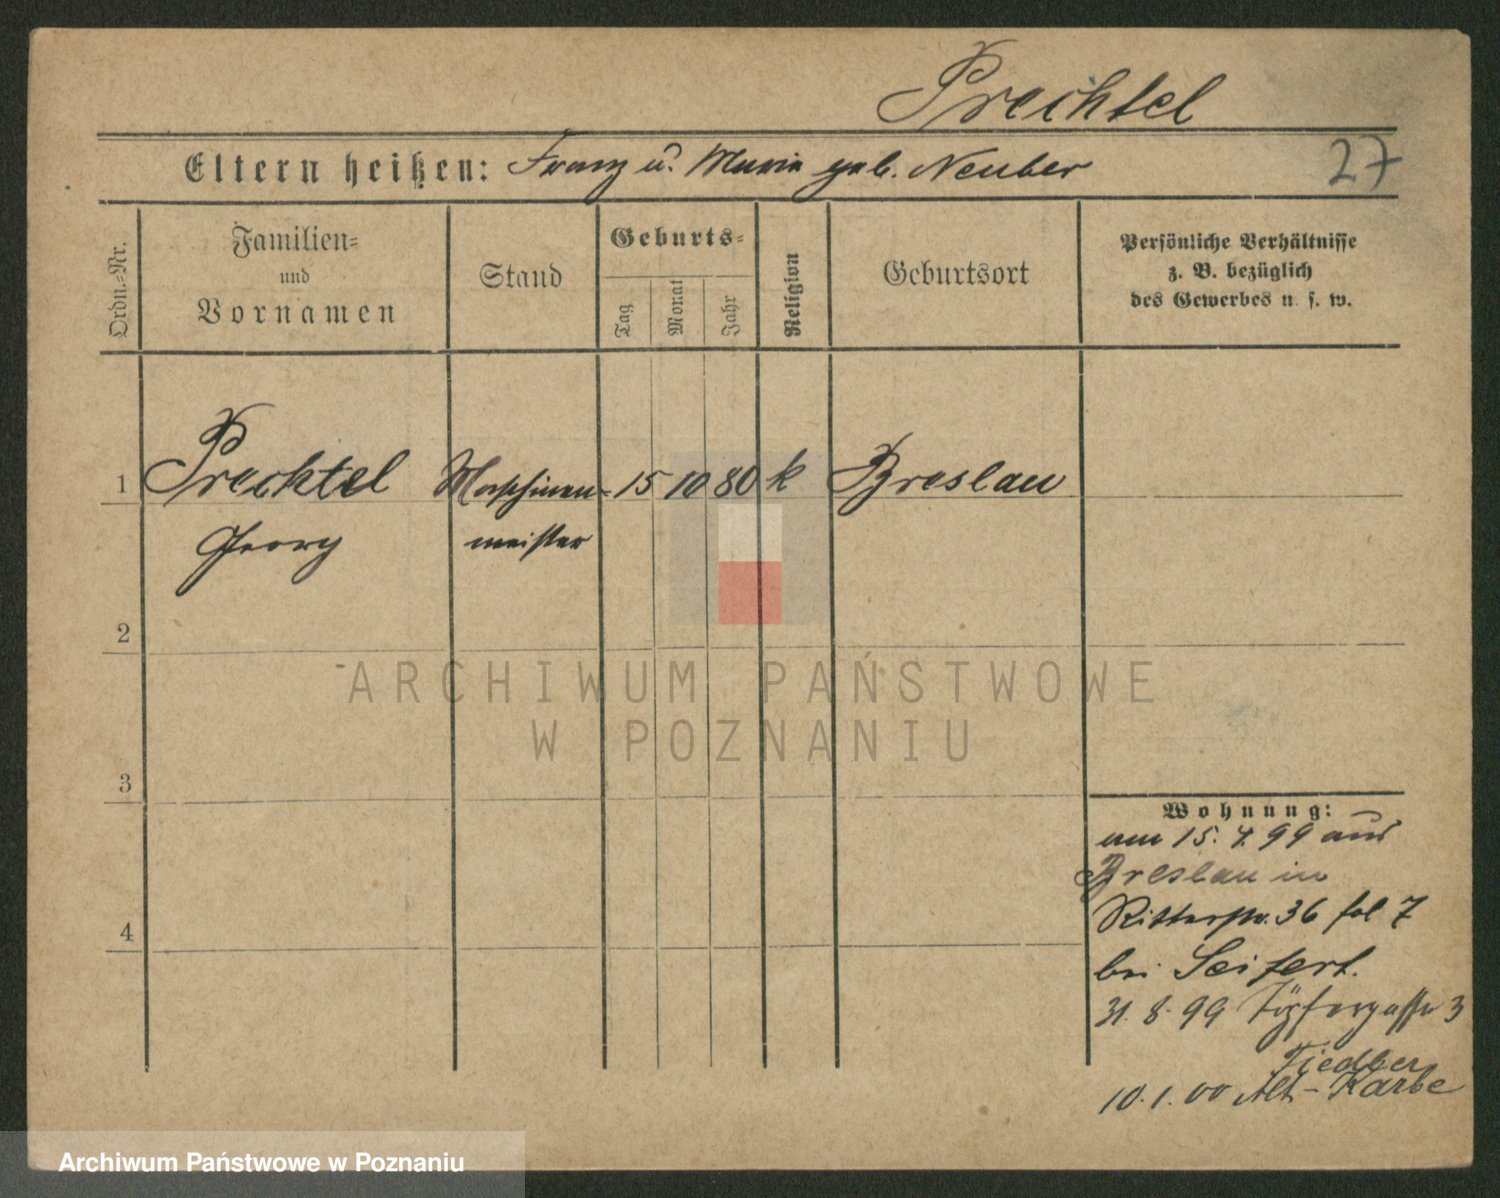 Prechtel
Eltern heißen: Franz u. Marie geb. Neuber
27
Ordn.=Nr.
Familien=
und
Vornamen
Stand
Geburts=
Tag
Monat
Jahr
Religion
Geburtsort
Persönliche Verhältnisse
z. B. bezüglich
des Gewerbes u. s. w.
1 Prechtel Maschinen= 15 10 80 k Breslau
Georg meister
2
3
4
ARCHIWUM PAŃSTWOWE
W POZNANIU
Wohnung:
am 15. 4. 99 aus
Breslau in
Ritterstr. 36 fol 7
bei Seifert.
31. 8. 99 Töpfergasse 3
Fiedler
10. 1. 00 Alt-Karbe
Archiwum Państwowe w Poznaniu